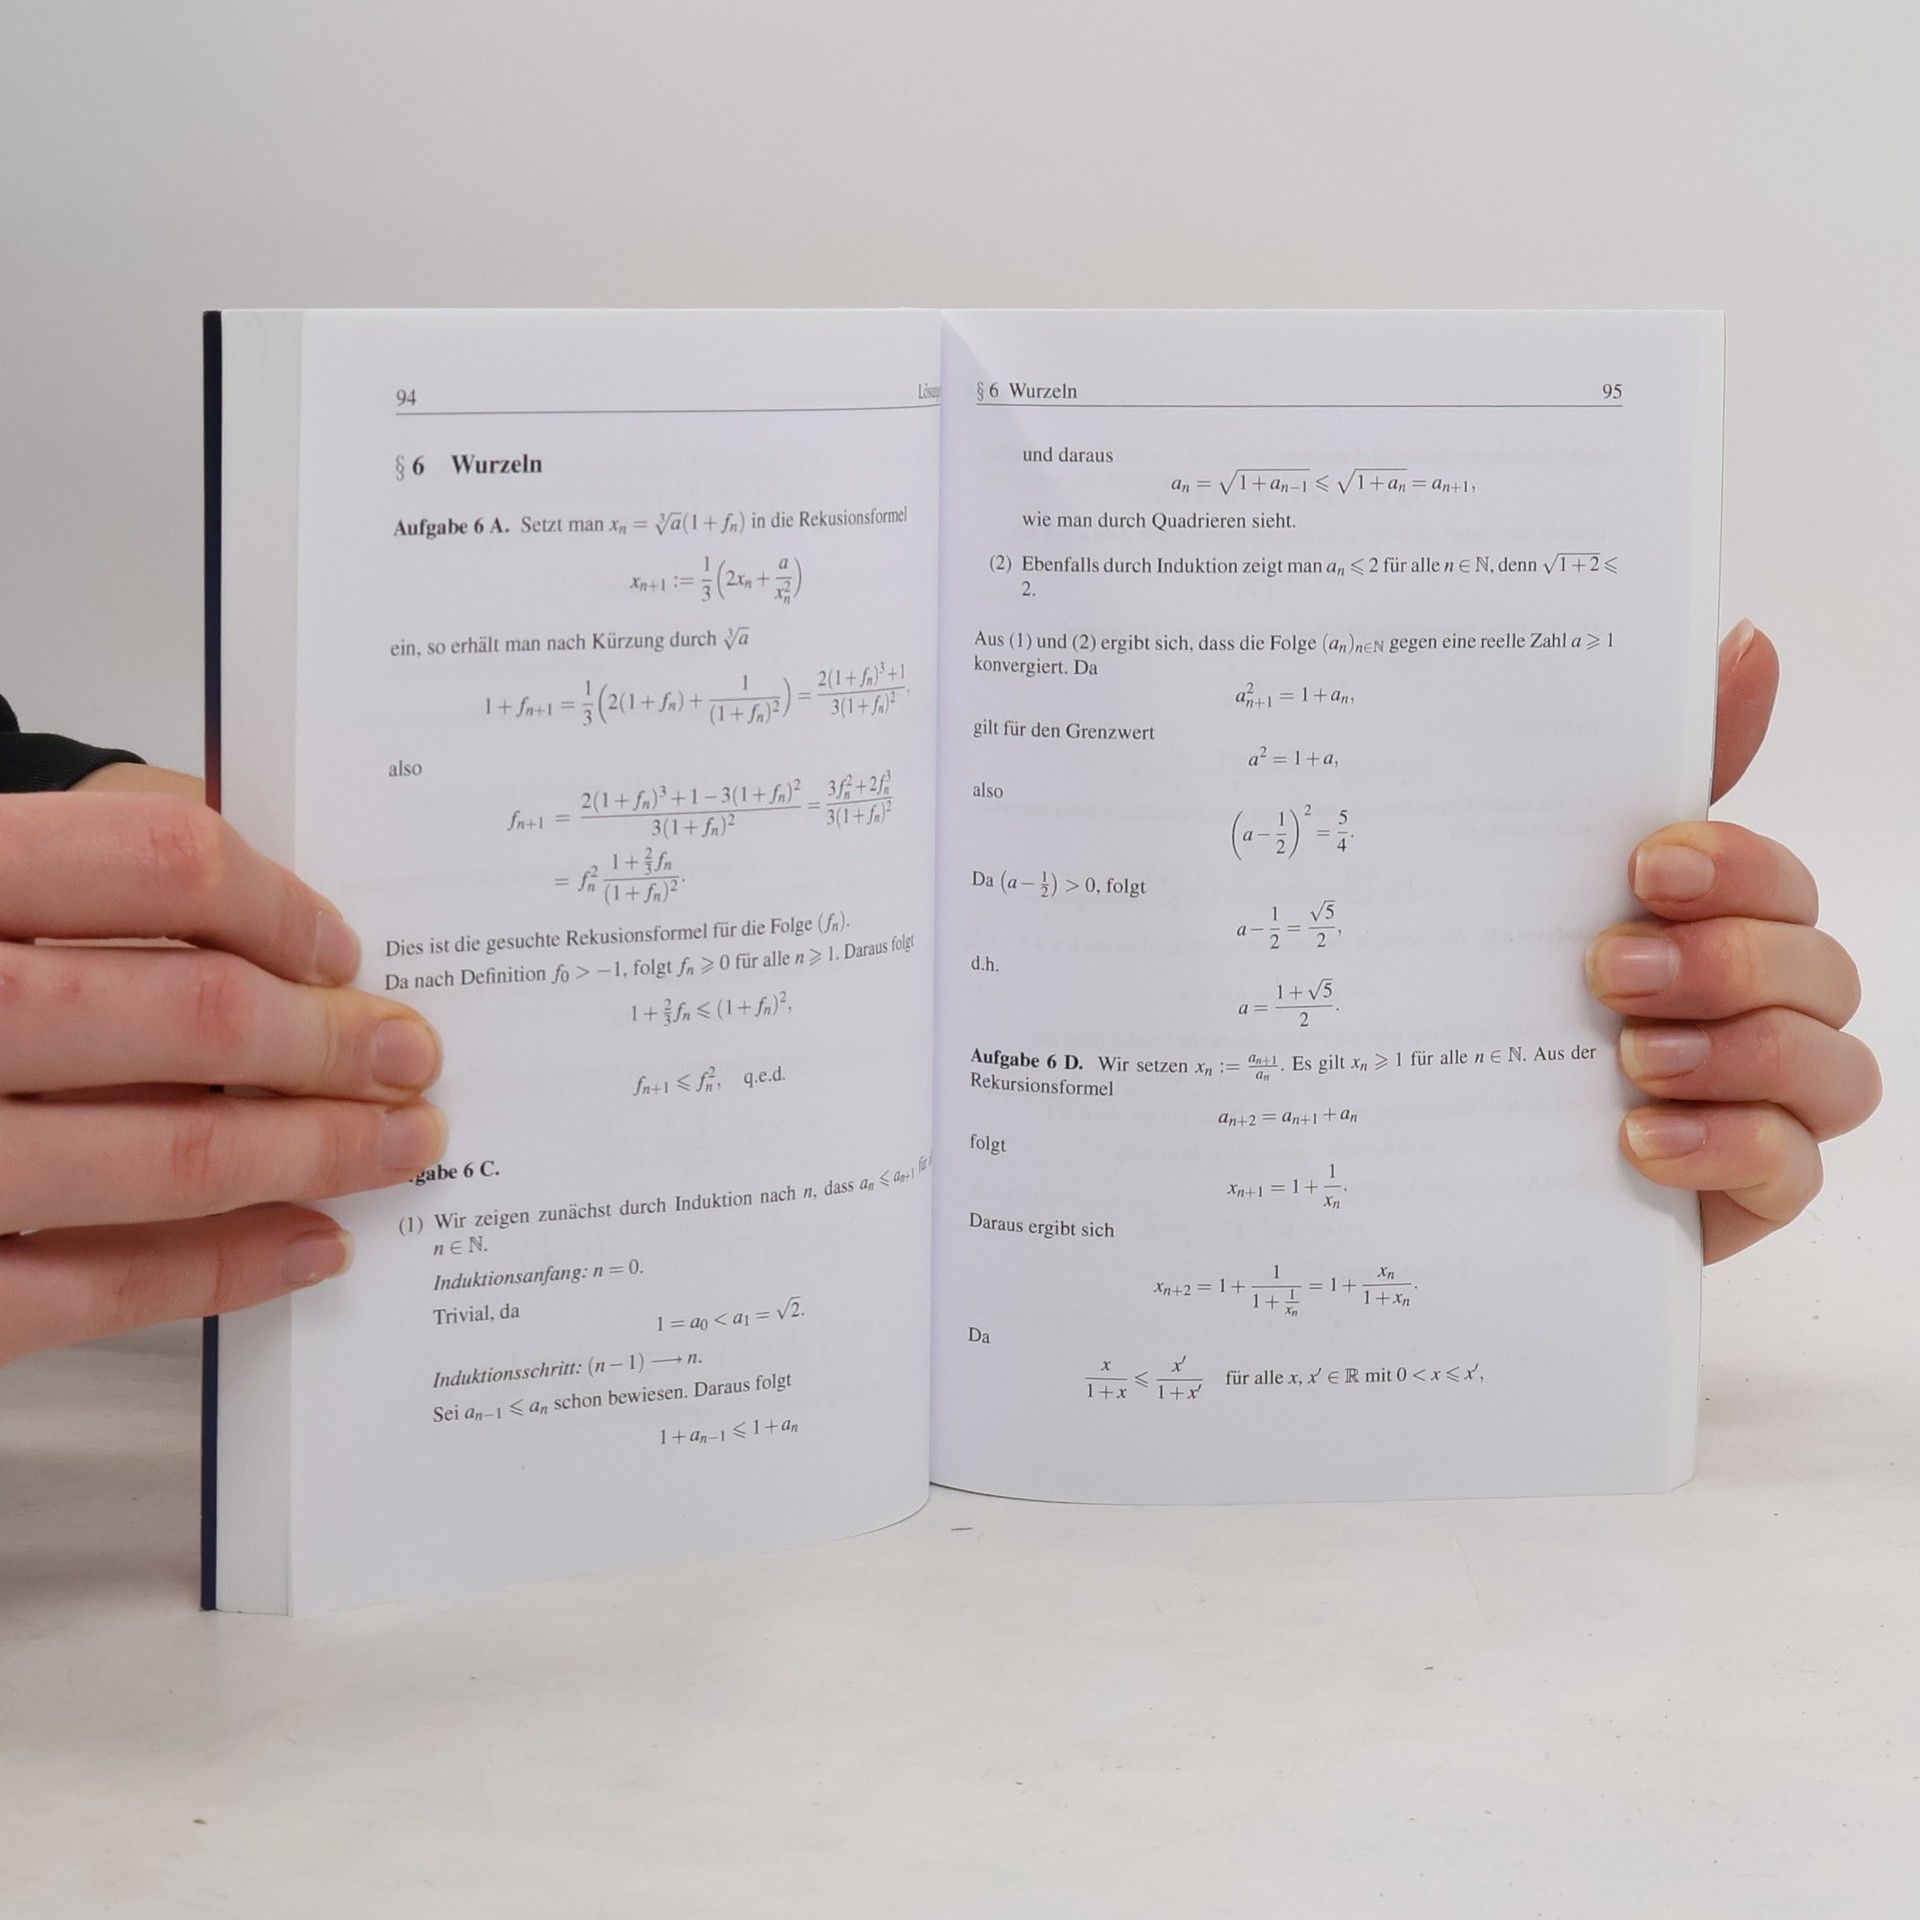 94
§ 6 Wurzeln
Aufgabe 6 A. Setzt man xₙ = ∛a(1 + fₙ) in die Rekusionsformel
xₙ₊₁ := 1/3 (2xₙ + a/xₙ²)
ein, so erhält man nach Kürzung durch ∛a
1 + fₙ₊₁ = 1/3 (2(1 + fₙ) + 1/(1 + fₙ)²) = (2(1 + fₙ)³ + 1)/(3(1 + fₙ)²),
also
fₙ₊₁ = (2(1 + fₙ)³ + 1 − 3(1 + fₙ)²)/(3(1 + fₙ)²) = (3fₙ² + 2fₙ³)/(3(1 + fₙ)²)
= fₙ² (1 + 2/3 fₙ)/((1 + fₙ)²).
Dies ist die gesuchte Rekusionsformel für die Folge (fₙ).
Da nach Definition f₀ > −1, folgt fₙ ⩾ 0 für alle n ⩾ 1. Daraus folgt
1 + 2/3 fₙ ⩽ (1 + fₙ)²,
fₙ₊₁ ⩽ fₙ², q.e.d.
gabe 6 C.
(1) Wir zeigen zunächst durch Induktion nach n, dass aₙ ⩽ aₙ₊₁ für
n ∈ ℕ.
Induktionsanfang: n = 0.
Trivial, da
1 = a₀ < a₁ = √2.
Induktionsschritt: (n − 1) ⟶ n.
Sei aₙ₋₁ ⩽ aₙ schon bewiesen. Daraus folgt
1 + aₙ₋₁ ⩽ 1 + aₙ
§ 6 Wurzeln 95
und daraus
aₙ = √(1 + aₙ₋₁) ⩽ √(1 + aₙ) = aₙ₊₁,
wie man durch Quadrieren sieht.
(2) Ebenfalls durch Induktion zeigt man aₙ ⩽ 2 für alle n ∈ ℕ, denn √(1 + 2) ⩽
2.
Aus (1) und (2) ergibt sich, dass die Folge (aₙ)ₙ∈ℕ gegen eine reelle Zahl a ⩾ 1
konvergiert. Da
aₙ₊₁² = 1 + aₙ,
gilt für den Grenzwert
a² = 1 + a,
also
(a − 1/2)² = 5/4.
Da (a − 1/2) > 0, folgt
a − 1/2 = √5/2,
d.h.
a = (1 + √5)/2.
Aufgabe 6 D. Wir setzen xₙ := aₙ₊₁/aₙ. Es gilt xₙ ⩾ 1 für alle n ∈ ℕ. Aus der
Rekursionsformel
aₙ₊₂ = aₙ₊₁ + aₙ
folgt
xₙ₊₁ = 1 + 1/xₙ.
Daraus ergibt sich
xₙ₊₂ = 1 + 1/(1 + 1/xₙ) = 1 + xₙ/(1 + xₙ).
Da
x/(1 + x) ⩽ x′/(1 + x′) für alle x, x′ ∈ ℝ mit 0 < x ⩽ x′,